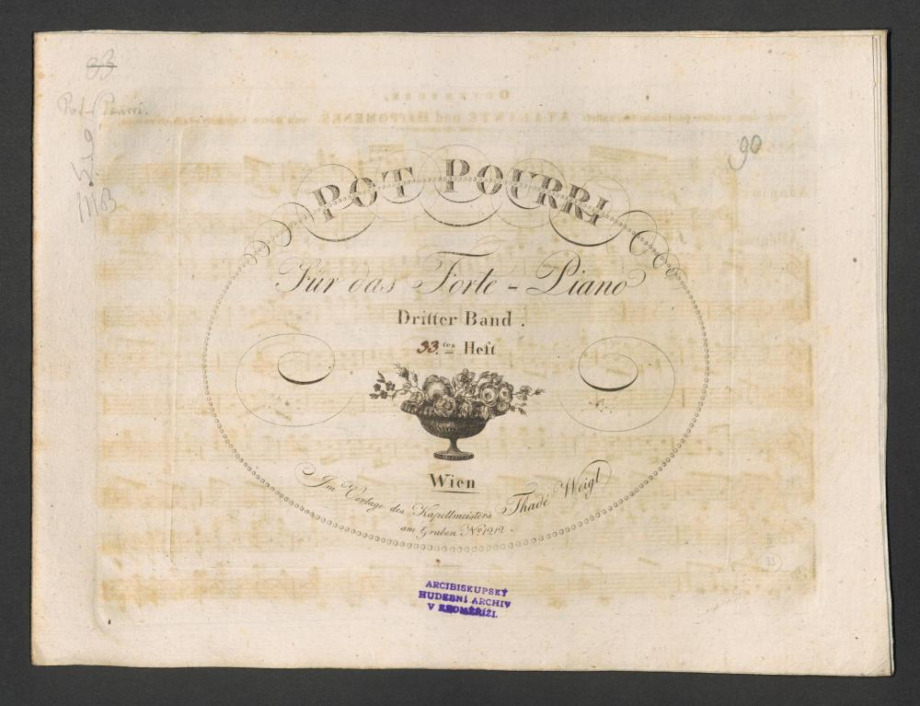 33
Pot-Pourri.
90
MB
POT POURRI
Für das Forte-Piano
Dritter Band.
33.tes Heft
Wien
Im Verlage des Kapellmeisters Thadé Weigl
am Graben No. 1212.
ARCIBISKUPSKÝ
HUDEBNÍ ARCHIV
V KROMĚŘÍŽI.